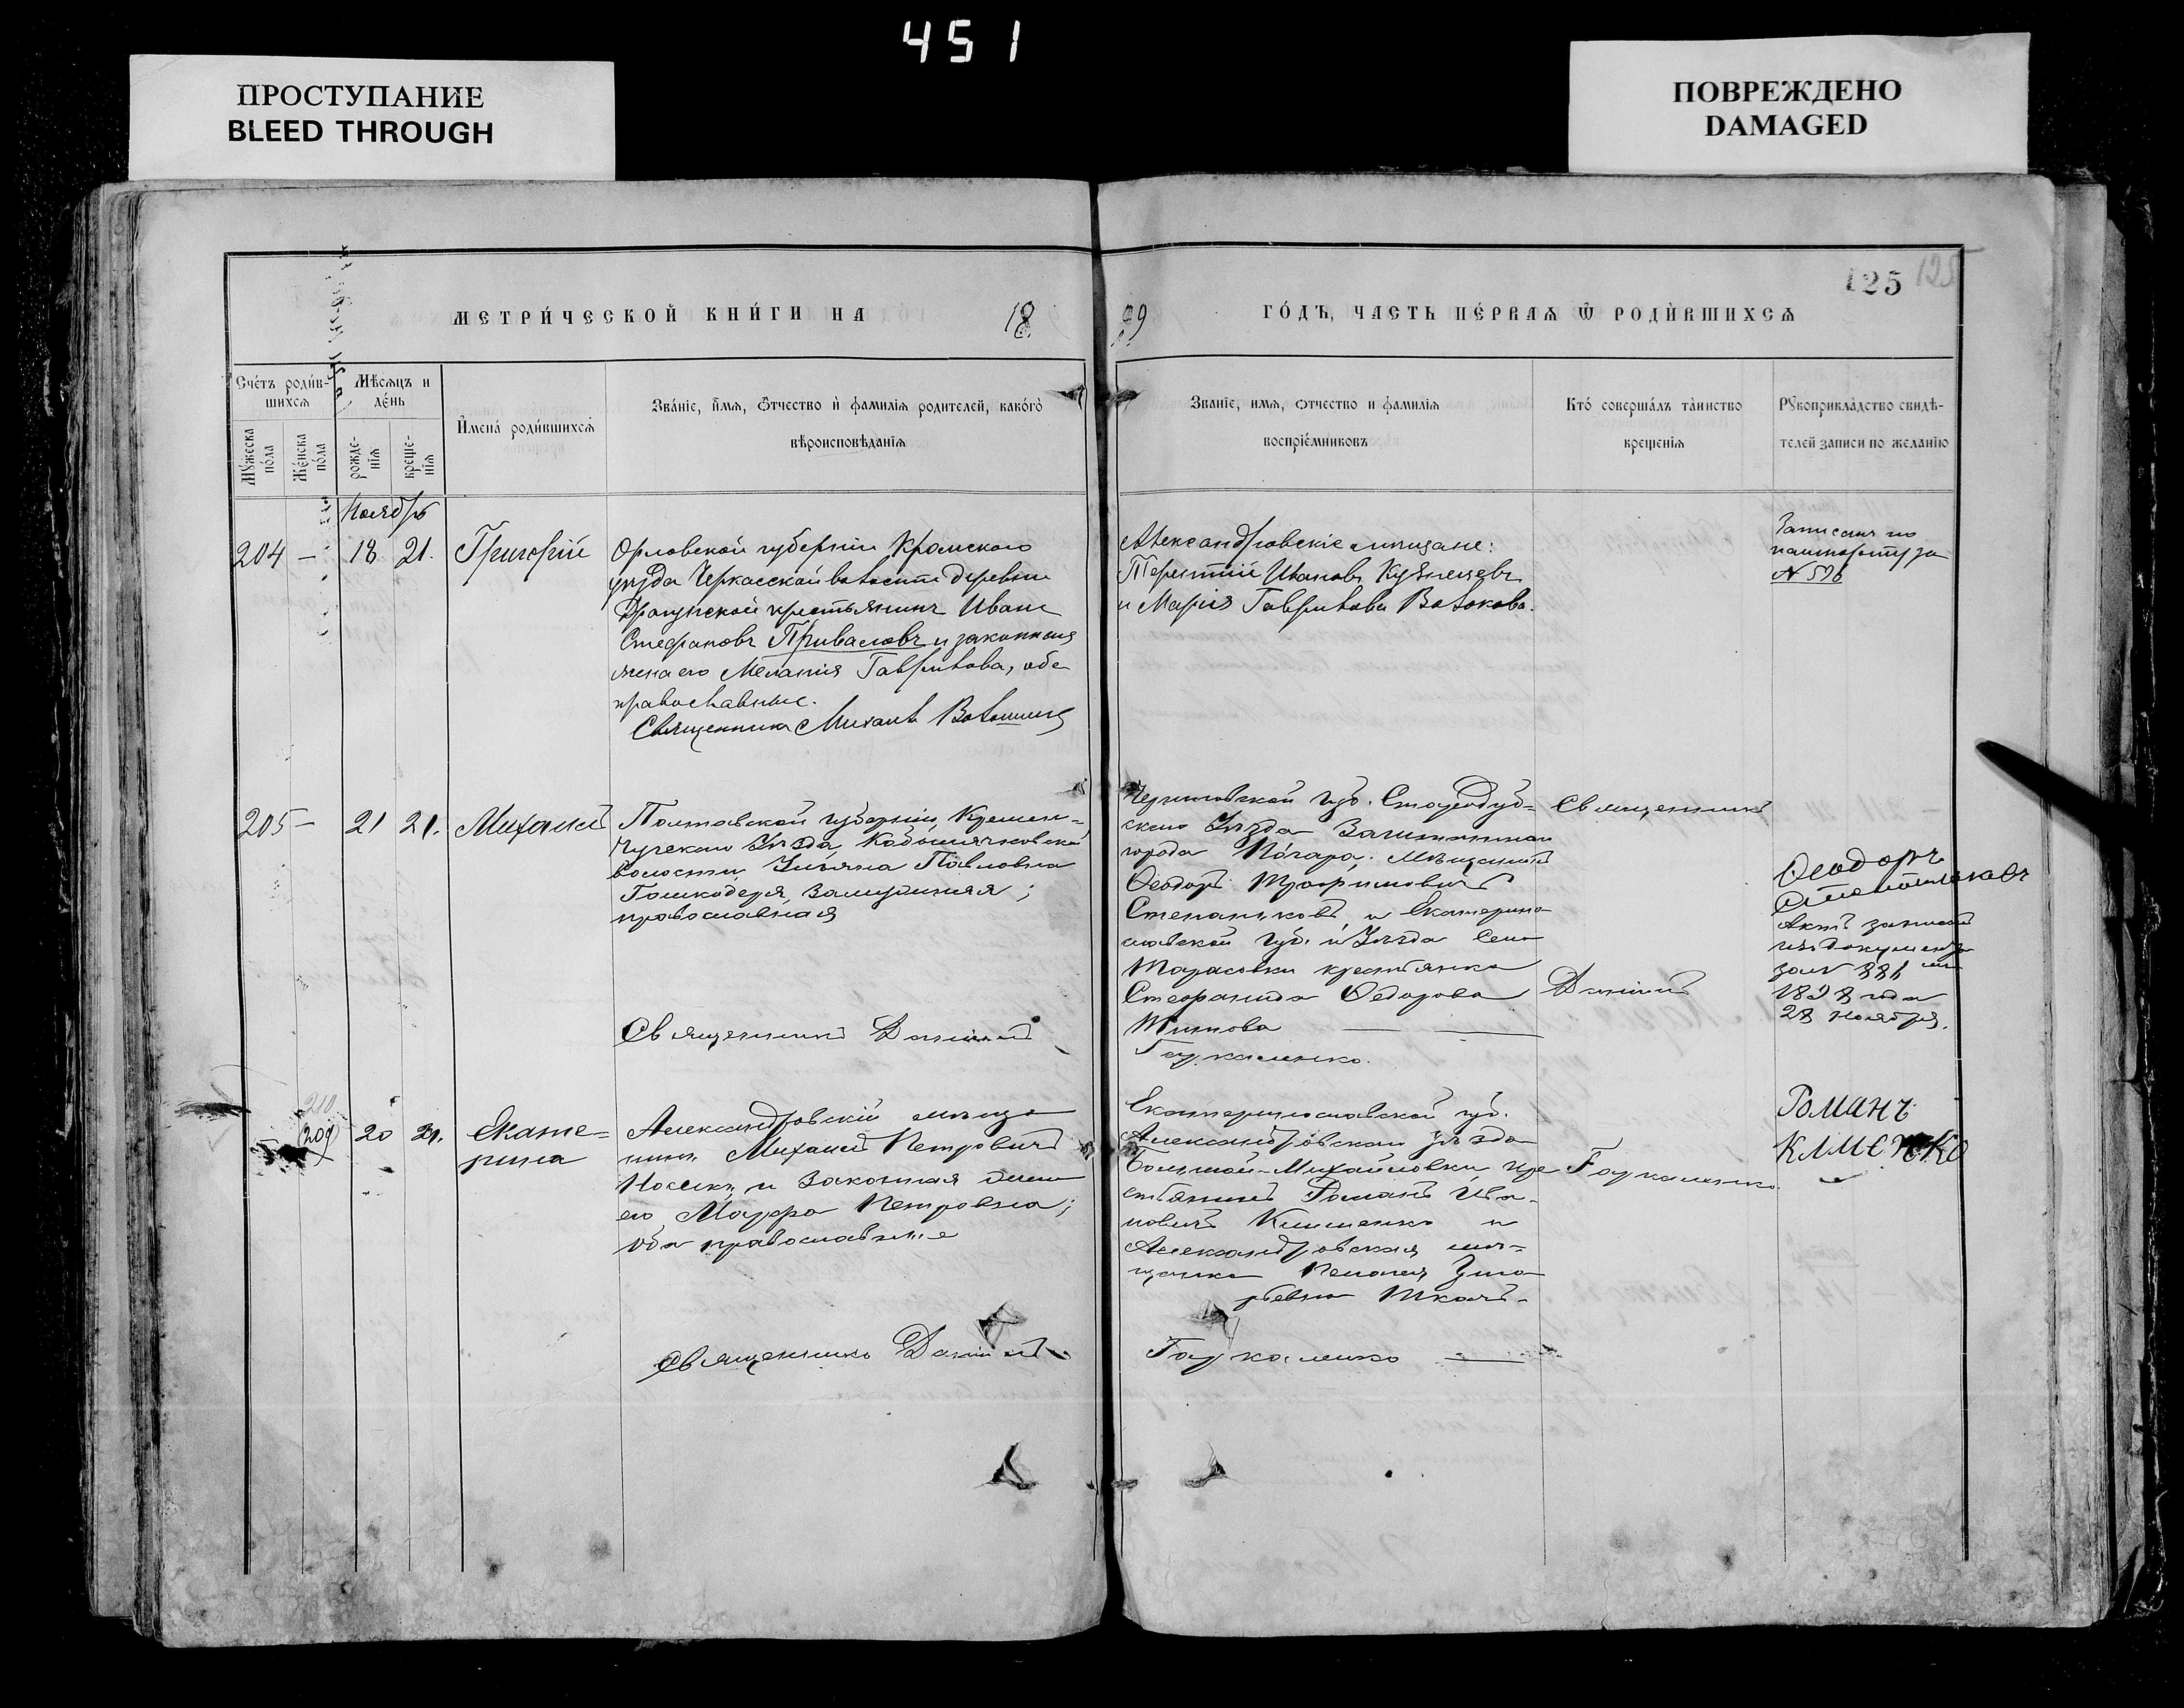 451
ПРОСТУПАНИЕ
BLEED THROUGH
ПОВРЕЖДЕНО
DAMAGED
125 125
МЕТРИ́ЧЕСКОЙ КНИ́ГИ НА 18
99 ГО́ДЪ, ЧАСТЬ ПЕ́РВАѦ Ѿ РОДИ́ВШИХСѦ
Сче́тъ роди́в-
шихсѧ
Мꙋ́жеска по́ла
Же́нска по́ла
Мѣ́сѧцъ и
де́нь
рожде-
нїѧ
креще-
нїѧ
И҆мена̀ роди́вшихсѧ
Зва́нїе, и҆́мѧ, ѻ҆́тчество и҆ фамилїѧ родителей, како́гѡ
вѣроисповѣ́данїѧ
Званїе, имѧ, ѻтчество и фамилїѧ
воспрїе́мниковъ
Кто́ соверша́лъ та́инство
креще́нїѧ
Рꙋкоприкла́дство свидѣ-
телей записи по жела́нїю
Ноябрь
204 — 18 21. Григорій
Орловской губерніи Кромского
уѣзда Черкасской волости деревни
Драгунской крестьянинъ Иванъ
Стефановъ Приваловъ и законная
жена его Меланія Гаврилова, оба
православные.
Священникъ Михаилъ Волошинъ
Александровскіе мѣщане:
Терентій Ивановъ Кузнецевъ
и Марія Гаврилова Волокова.
Записанъ по
паспорту за
№ 596
205 — 21 21. Михаилъ
Полтавской губерніи, Кремен-
чугскаго Уѣзда,
волости, Ульяна Павловна
православная
Священникъ Даніилъ
Черниговской губ. Стародуб-
скаго Уѣзда Заштатнаго
города Погара. Мѣщанинъ
Ѳеодоръ Трофимовичъ
Степаньковъ и Екатерино-
славской губ. и Уѣзда Села
Тарасовки крестьянка
Стефанида Ѳедорова
Титова
Гаркаленко.
Священникъ
Даніилъ
Гаркаленко.
Ѳеодоръ
Степаньковъ
Актъ записан
изъ документа
за №
1898 года
28 ноября.
210
— 209 20 21. Екате-
рина
Александровскій мѣща-
нинъ Михаилъ Петровичъ
Носикъ и Законная жена
его Марфа Петровна;
Оба православные
Священникъ Даніилъ
Екатеринославской губ.
Александровскаго уѣзда
Большой-Михайловки кре-
стьянинъ Романъ Ива-
новичъ Клименко и
Александровская мѣ-
щанка Пелагея
Ткачъ.
Гаркаленко —
Романъ
КЛМЕНКО